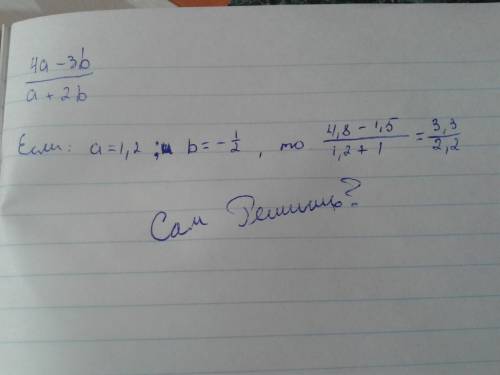 4a - 3b
a + 2b
Если: a = 1,2 ; и b = - 1/2 , то (4,8 - 1,5)/(1,2 + 1) = 3,3/2,2
Сам Решишь?